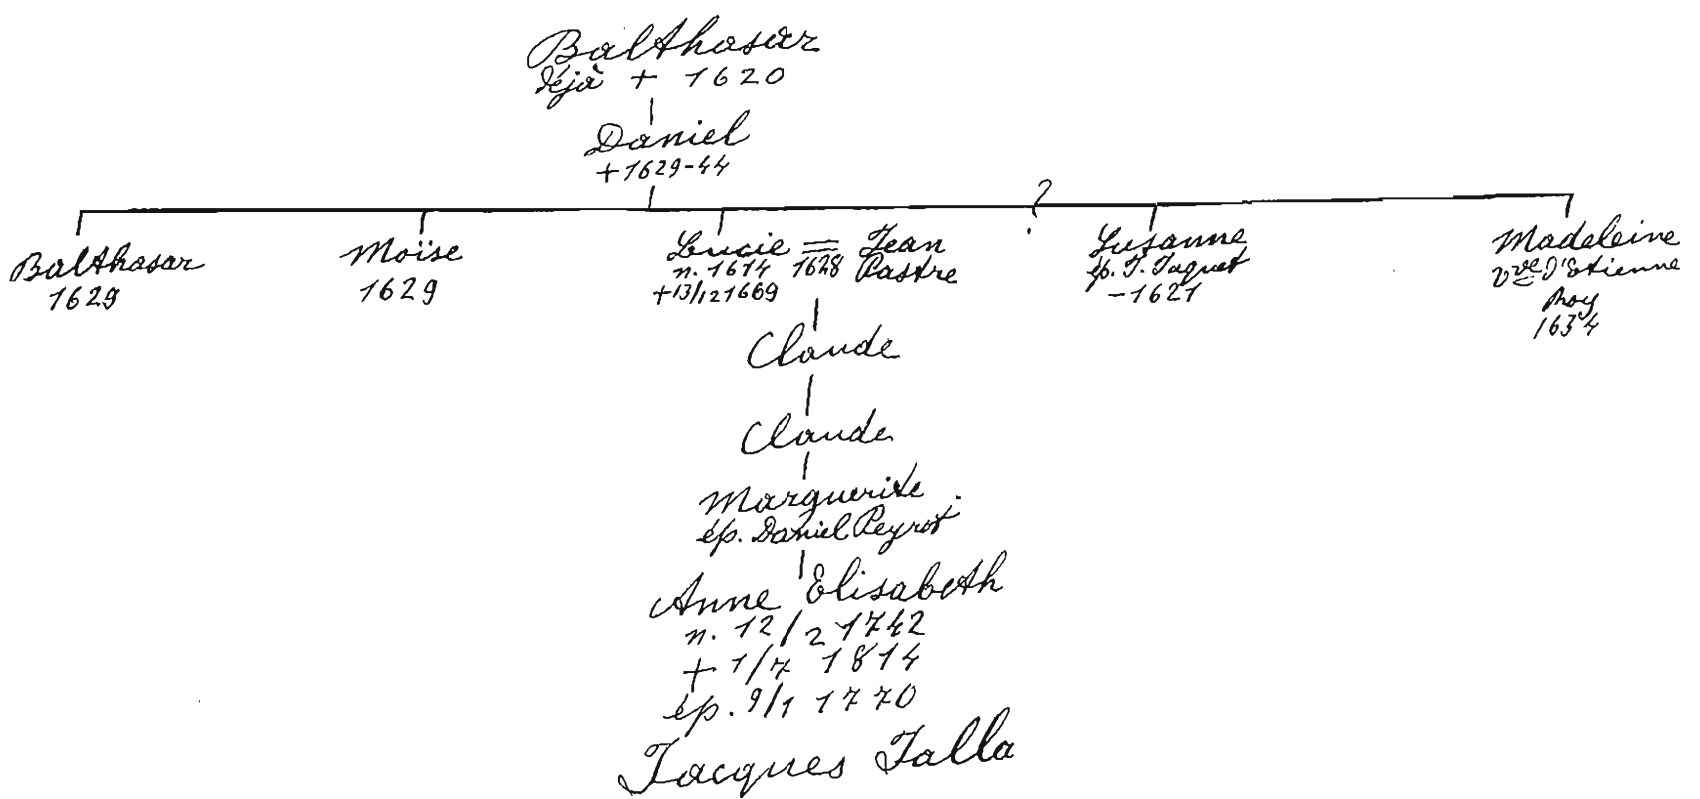 Balthasar
déjà + 1620
Daniel
+ 1629-44
?
Balthasar
1629
Moïse
1629
Lucie = Jean
n. 1614 1628 Pastre
+ 13/12 1669
Susanne
ép. J. Jaquet
- 1621
Madeleine
vve d'Etienne
Roy
1634
Claude
Claude
Marguerite
ép. Daniel Peyrot
Anne Elisabeth
n. 12/2 1742
+ 1/7 1814
ép. 9/1 1770
Jacques Jalla